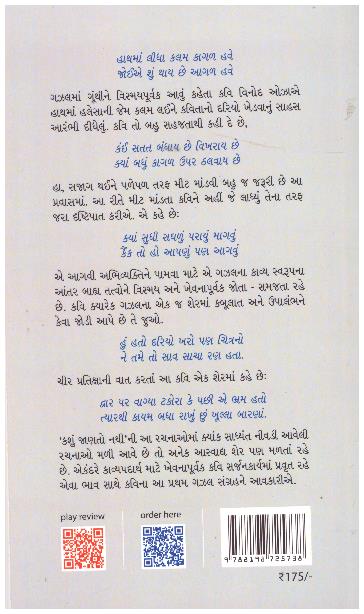 હાથમાં લીધા કલમ કાગળ હવે
જોઈએ શું થાય છે આગળ હવે
ગઝલમાં ગૂંથીને વિસ્મયપૂર્વક આવું કહેતા કવિ વિનોદ ઓઝાએ
હાથમાં હલેસાની જેમ કલમ લઈને કવિતાનો દરિયો ખેડવાનું સાહસ
આરંભી દીધેલું. કવિ તો બહુ સહજતાથી કહી દે છે,
કંઈ સતત બંધાય છે વિખરાય છે
ક્યાં બધું કાગળ ઉપર ઠલવાય છે
હા, સજાગ થઈને પળેપળ તરફ મીટ માંડવી બહુ જ જરૂરી છે આ
પ્રવાસમાં. આ રીતે મીટ માંડતા કવિને અહીં જે લાધ્યું તેના તરફ
જરા દૃષ્ટિપાત કરીએ. એ કહે છે:
ક્યાં સુધી સઘળું પરાયું માગવું
કૈંક તો હો આપણું પણ આગવું
એ આગવી અભિવ્યક્તિને પામવા માટે એ ગઝલના કાવ્ય સ્વરૂપના
આંતર બાહ્ય તત્વોને વિસ્મય અને ખેવનાપૂર્વક જોતા - સમજતા રહે
છે. કવિ ક્યારેક ગઝલના એક જ શેરમાં કબૂલાત અને ઉપાલંભને
કેવા જોડી આપે છે તે જુઓ.
હું હતો દરિયો ખરો પણ ચિત્રનો
ને તમે તો સાવ સાચા રણ હતા.
ચીર પ્રતિક્ષાની વાત કરતાં આ કવિ એક શેરમાં કહે છે:
દ્વાર પર વાગ્યા ટકોરા કે પછી એ ભ્રમ હતો
ત્યારથી કાયમ બધા રાખું છું ખૂલ્લા બારણાં.
'કશું જાણતો નથી'ની આ રચનાઓમાં ક્યાંક સાધ્યંત નીવડી આવેલી
રચનાઓ મળી આવે છે તો અનેક આસ્વાદ્ય શેર પણ મળતાં રહે
છે. એકંદરે કાવ્યપદાર્થ માટે ખેવનાપૂર્વક કવિ સર્જનકાર્યમાં પ્રવૃત રહે
એવા ભાવ સાથે કવિના આ પ્રથમ ગઝલ સંગ્રહને આવકારીએ.
play review
order here
₹175/-